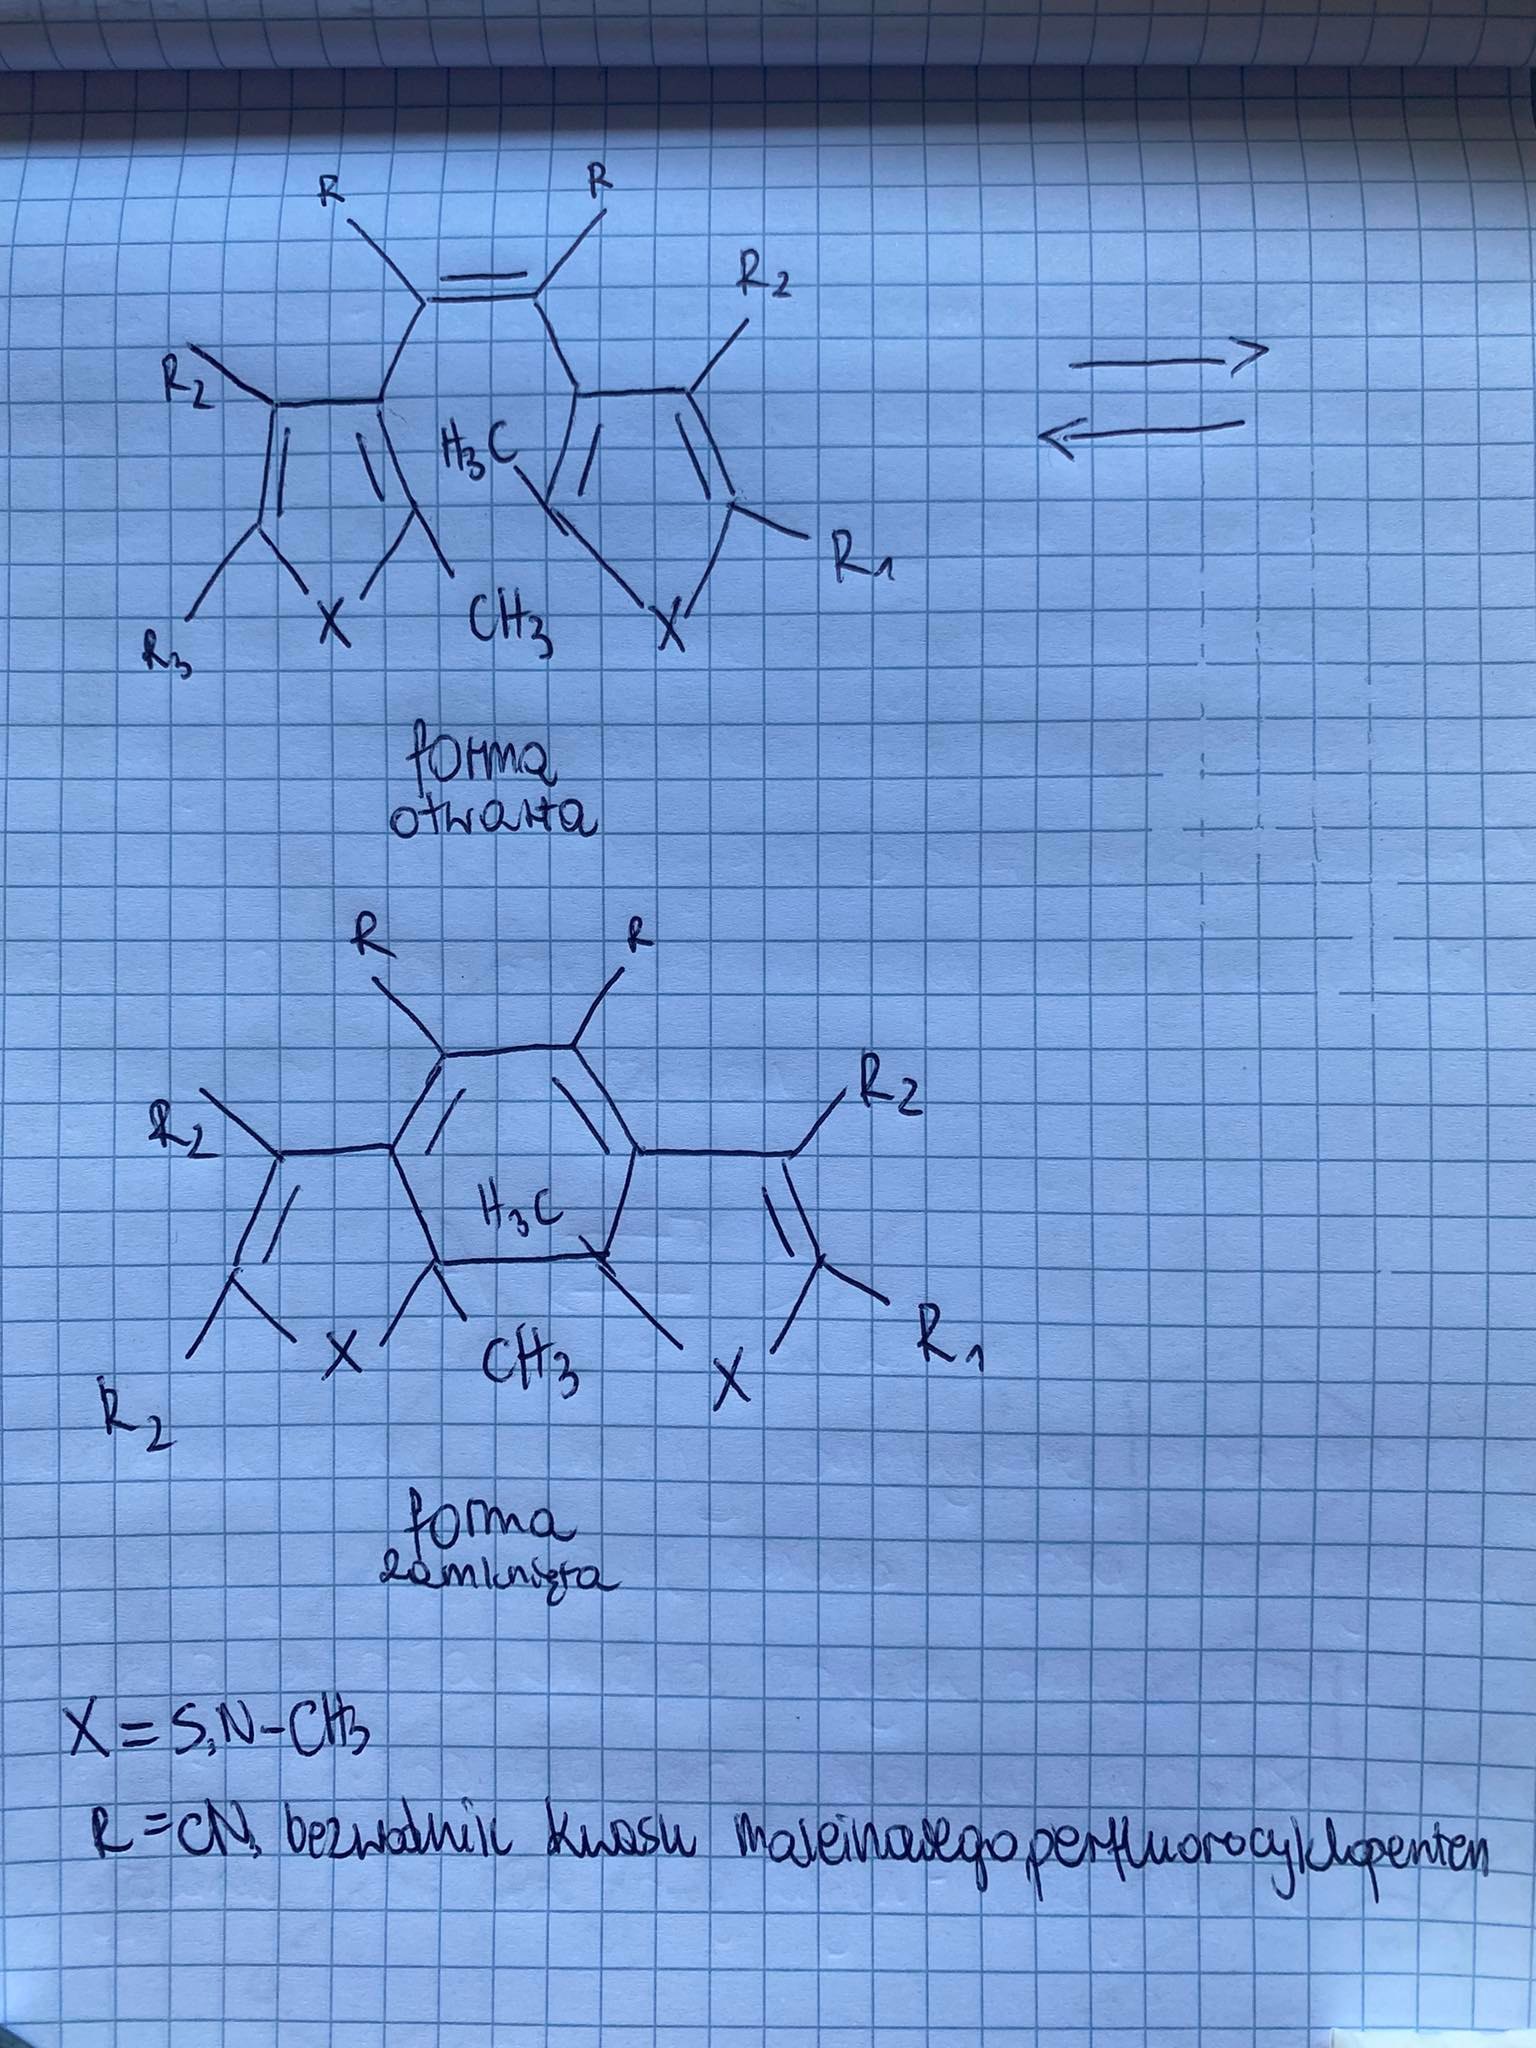 R R
R2
R2
H3C
R1
X CH3 X
R3
forma
otwarta
R R
R2
R2
H3C
X CH3 X R1
R2
forma
zamknięta
X = S, N-CH3
R = CN, bezwodnik kwasu maleinowego, perfluorocyklopenten